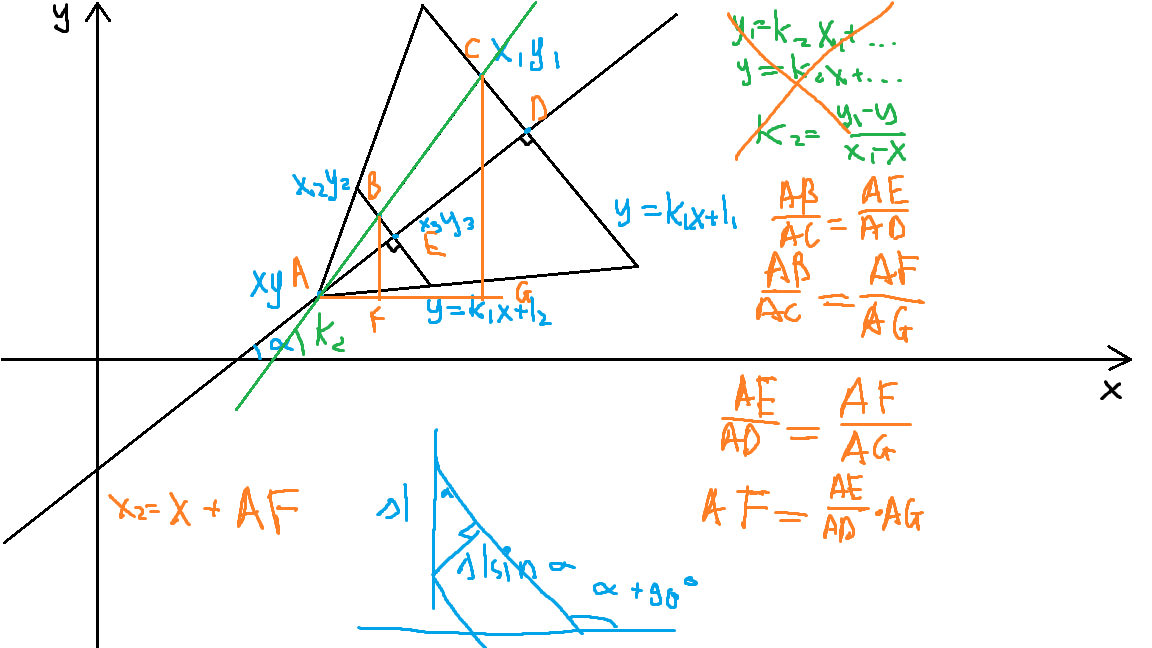 y
C x₁y₁
D
x₂y₂ B
x₃y₃
E
y=k₁x+l₁
xy A
F
G
y=k₁x+l₂
α k₂
x
y₁=k₂x₁+...
y=k₂x+...
k₂=(y₁-y)/(x₁-x)
AB/AC=AE/AD
AB/AC=AF/AG
AE/AD=AF/AG
AF=AE/AD·AG
x₂=x+AF
Δl
α
Δlsinα
α+90°